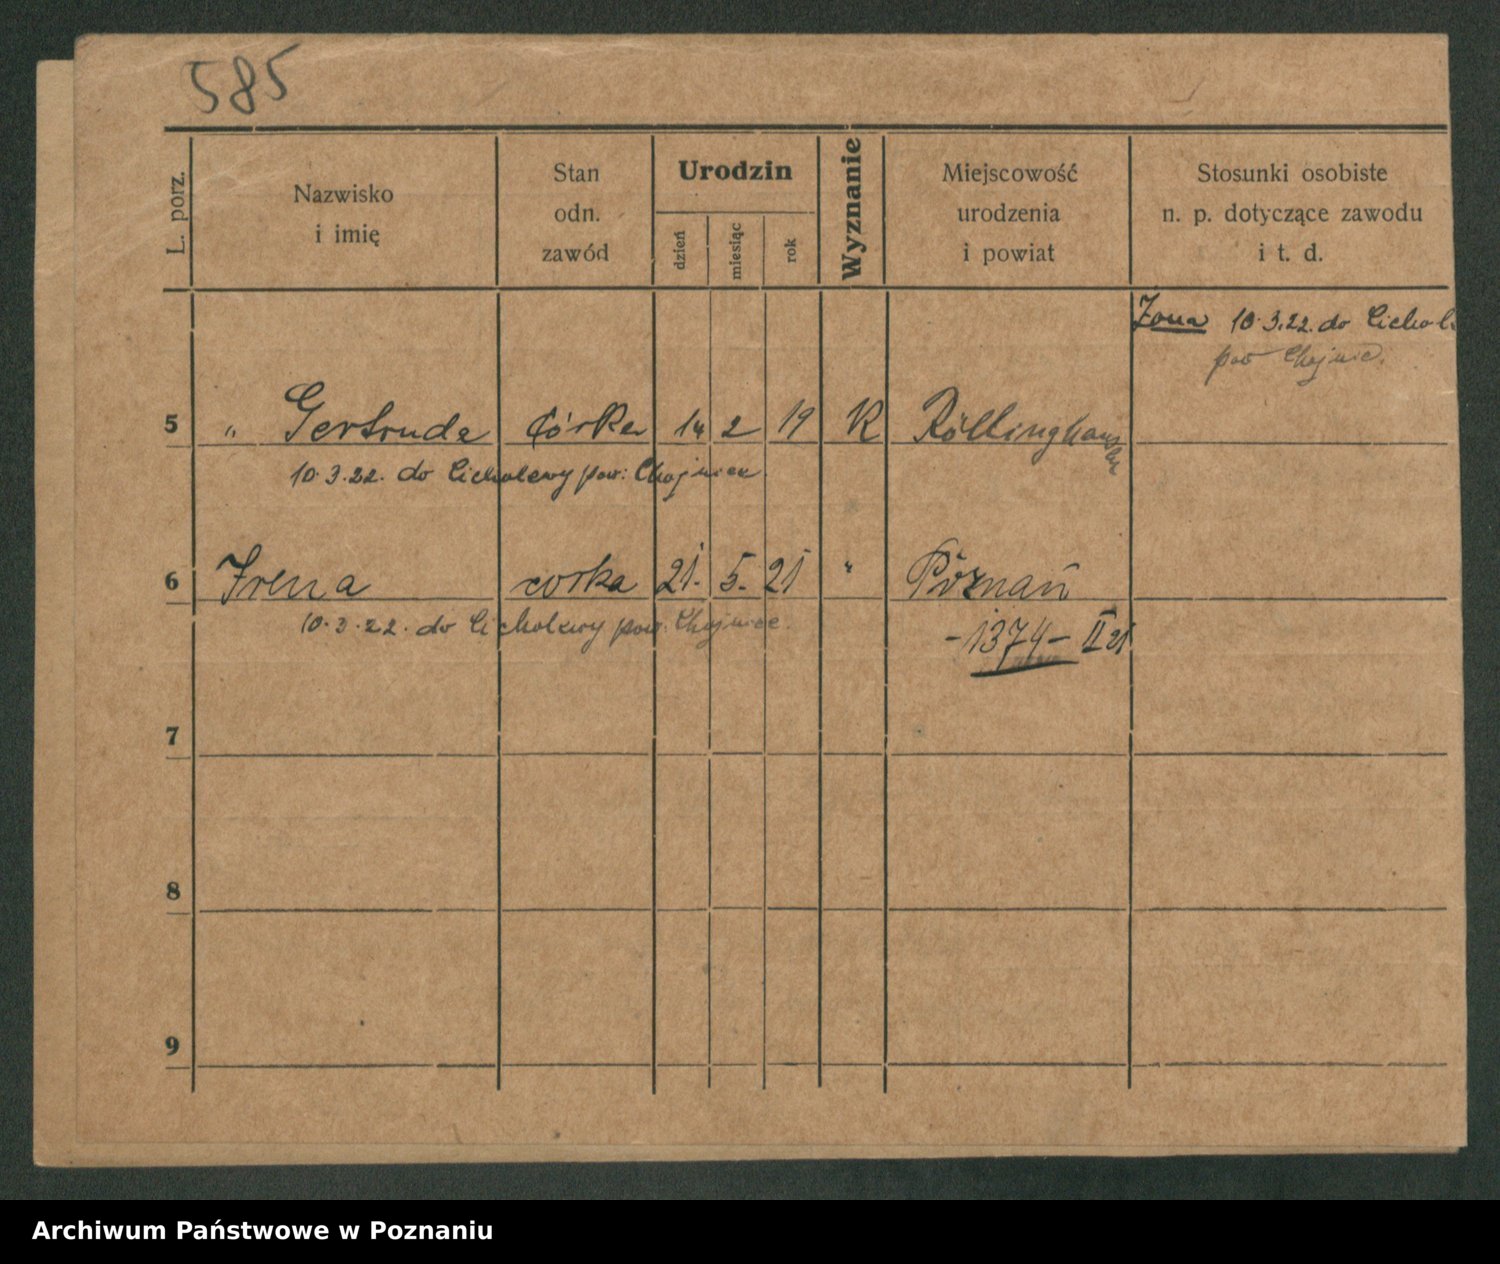 585
L. porz.
Nazwisko
i imię
Stan
odn.
zawód
Urodzin
dzień
miesiąc
rok
Wyznanie
Miejscowość
urodzenia
i powiat
Stosunki osobiste
n. p. dotyczące zawodu
i t. d.
Żona 10.3.22. do
pow Chojnic.
5 " Gertruda córka 14 2 19 K Röllinghausen
10.3.22. do Cicholewy pow. Chojnice.
6 Irena corka 21. 5. 21 " Poznań
10.3.22. do Cicholewy pow. Chojnice.
-1374- II 21
7
8
9
Archiwum Państwowe w Poznaniu